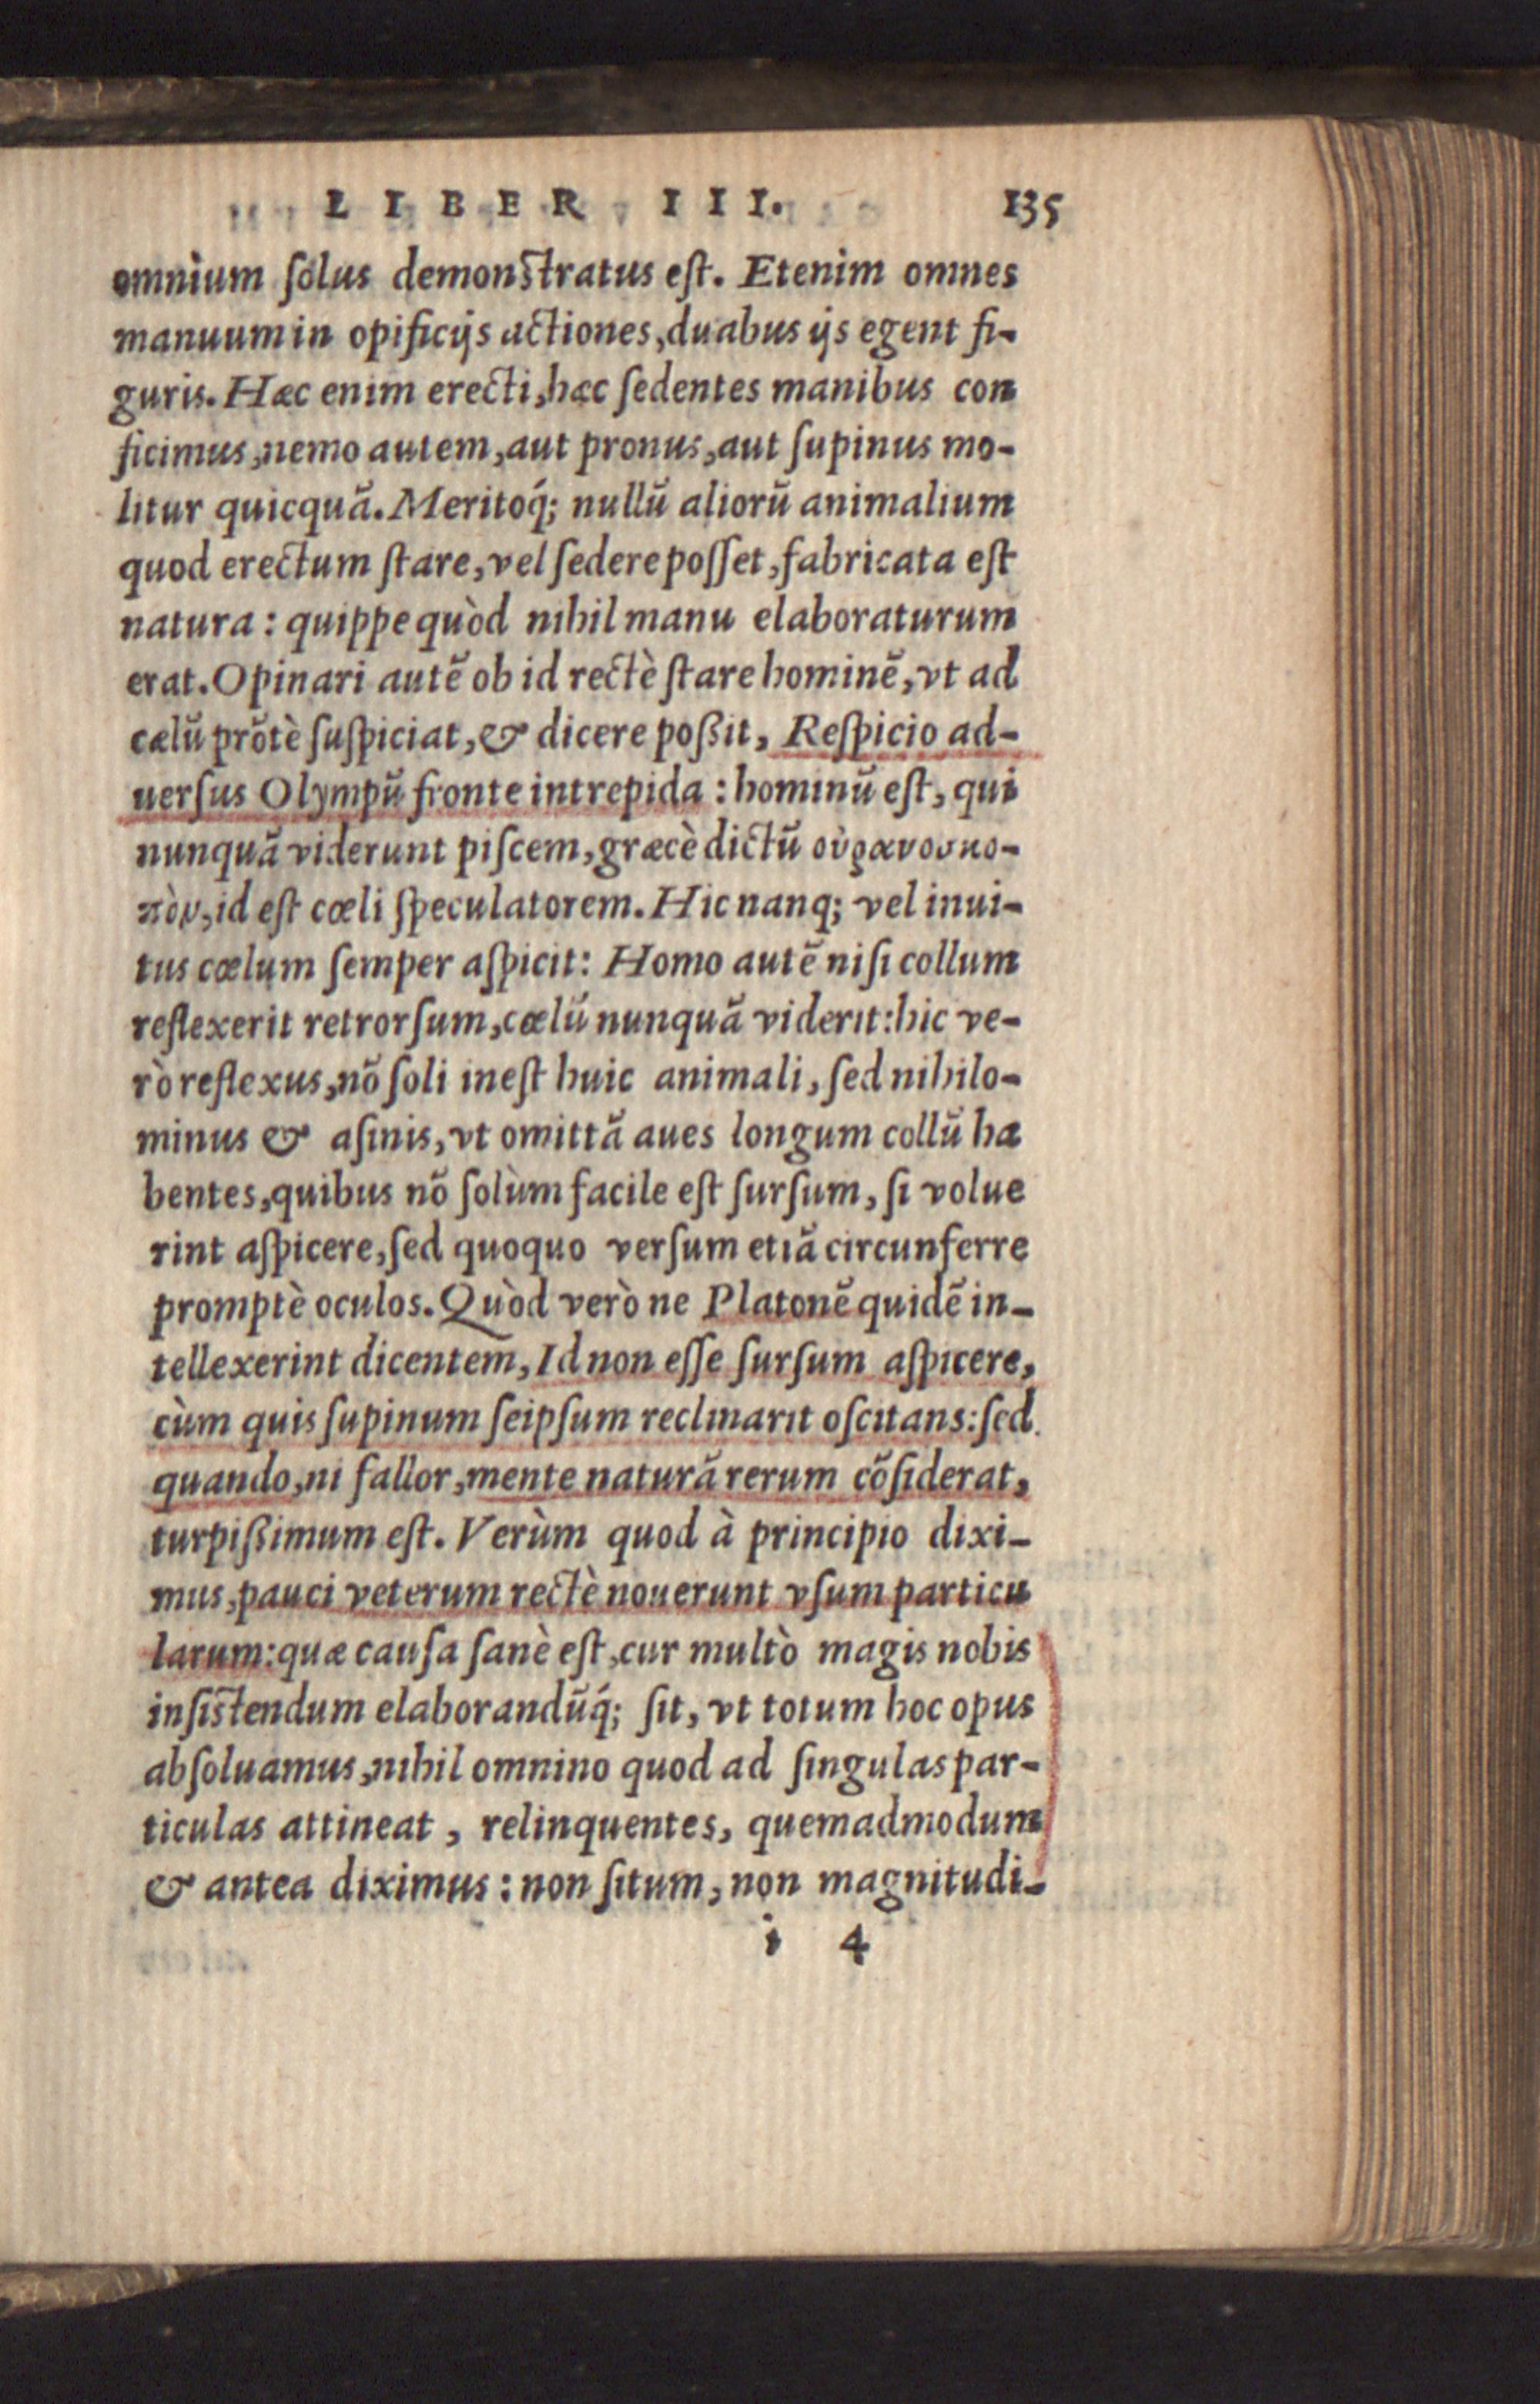 LIBER III. 135
omnium ſolus demonſtratus eſt. Etenim omnes
manuum in opificijs actiones, duabus ijs egent fi-
guris. Hæc enim erecti, hæc ſedentes manibus con
ficimus, nemo autem, aut pronus, aut ſupinus mo-
litur quicquā. Meritoq́; nullū aliorū animalium
quod erectum ſtare, vel ſedere poſſet, fabricata eſt
natura: quippe quòd nihil manu elaboraturum
erat. Opinari autē ob id rectè ſtare hominē, vt ad
cælū prōtè ſuſpiciat, & dicere poßit, Reſpicio ad-
uerſus Olympū fronte intrepida: hominū eſt, qui
nunquā viderunt piſcem, græcè dictū οὐρανοσκο-
πὸν, id eſt cœli ſpeculatorem. Hic nanq; vel inui-
tus cœlum ſemper aſpicit: Homo autē niſi collum
reflexerit retrorſum, cœlū nunquā viderit: hic ve-
rò reflexus, nō ſoli ineſt huic animali, ſed nihilo-
minus & aſinis, vt omittā aues longum collū ha
bentes, quibus nō ſolùm facile eſt ſurſum, ſi volue
rint aſpicere, ſed quoquo verſum etiā circunferre
promptè oculos. Quòd verò ne Platonē quidē in-
tellexerint dicentem, Id non eſſe ſurſum aſpicere,
cùm quis ſupinum ſeipſum reclinarit oſcitans: ſed
quando, ni fallor, mente naturā rerum cōſiderat,
turpißimum eſt. Verùm quod à principio dixi-
mus, pauci veterum rectè nouerunt vſum particu
larum: quæ cauſa ſanè eſt, cur multò magis nobis
inſiſtendum elaborandūq́; ſit, vt totum hoc opus
abſoluamus, nihil omnino quod ad ſingulas par-
ticulas attineat, relinquentes, quemadmodum
& antea diximus: non ſitum, non magnitudi-
i 4